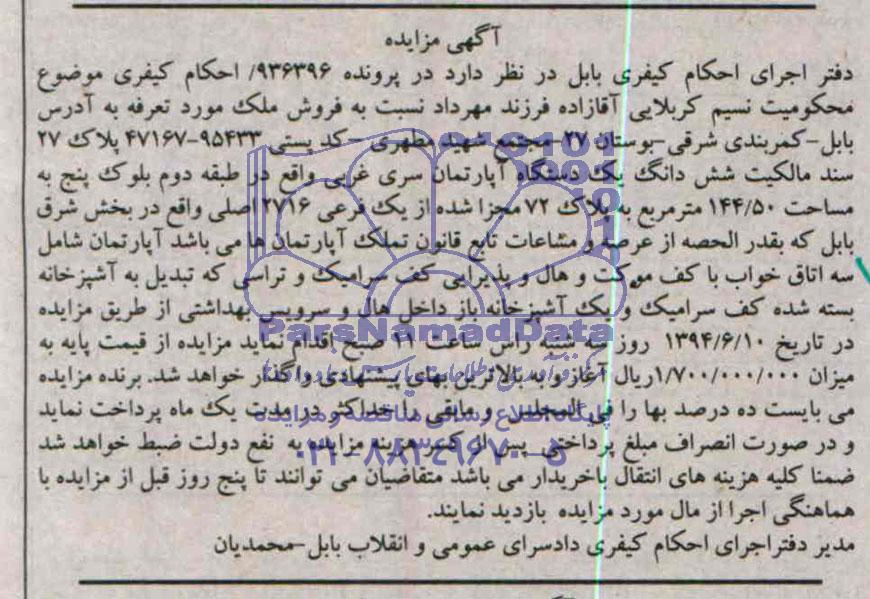 آگهی مزایده
دفتر اجرای احکام کیفری بابل در نظر دارد در پرونده ۹۳۶۳۹۶/ احکام کیفری موضوع
محکومیت نسیم کربلایی آقازاده فرزند مهرداد نسبت به فروش ملک مورد تعرفه به آدرس
بابل-کمربندی شرقی-بوستان ۲۷-مجتمع شهید مطهری -کد پستی ۹۵۴۳۳-۴۷۱۶۷ پلاک ۲۷
سند مالکیت شش دانگ یک دستگاه آپارتمان سری غربی واقع در طبقه دوم بلوک پنج به
مساحت ۱۴۴/۵۰ مترمربع به پلاک ۷۲ مجزا شده از یک فرعی ۲۷۱۶ اصلی واقع در بخش شرق
بابل که بقدر الحصه از عرصه و مشاعات تابع قانون تملک آپارتمان ها می باشد آپارتمان شامل
سه اتاق خواب با کف موکت و هال و پذیرایی کف سرامیک و تراسی که تبدیل به آشپزخانه
بسته شده کف سرامیک و یک آشپزخانه باز داخل هال و سرویس بهداشتی از طریق مزایده
در تاریخ ۱۳۹۴/۶/۱۰ روز شنبه راس ساعت ۱۱ صبح اقدام نماید مزایده از قیمت پایه به
میزان ۱/۷۰۰/۰۰۰/۰۰۰ریال آغاز و به بالاترین بهای پیشنهادی واگذار خواهد شد. برنده مزایده
می بایست ده درصد بها را فی المجلس و مابقی را حداکثر در مدت یک ماه پرداخت نماید
و در صورت انصراف مبلغ پرداختی پس از کسر هزینه مزایده به نفع دولت ضبط خواهد شد
ضمنا کلیه هزینه های انتقال باخریدار می باشد متقاضیان می توانند تا پنج روز قبل از مزایده با
هماهنگی اجرا از مال مورد مزایده بازدید نمایند.
مدیر دفتراجرای احکام کیفری دادسرای عمومی و انقلاب بابل-محمدیان
ParsNamadData
پایگاه اطلاع رسانی مناقصه و مزایده
۰۲۱-۸۸۳۴۹۶۷۰-۵